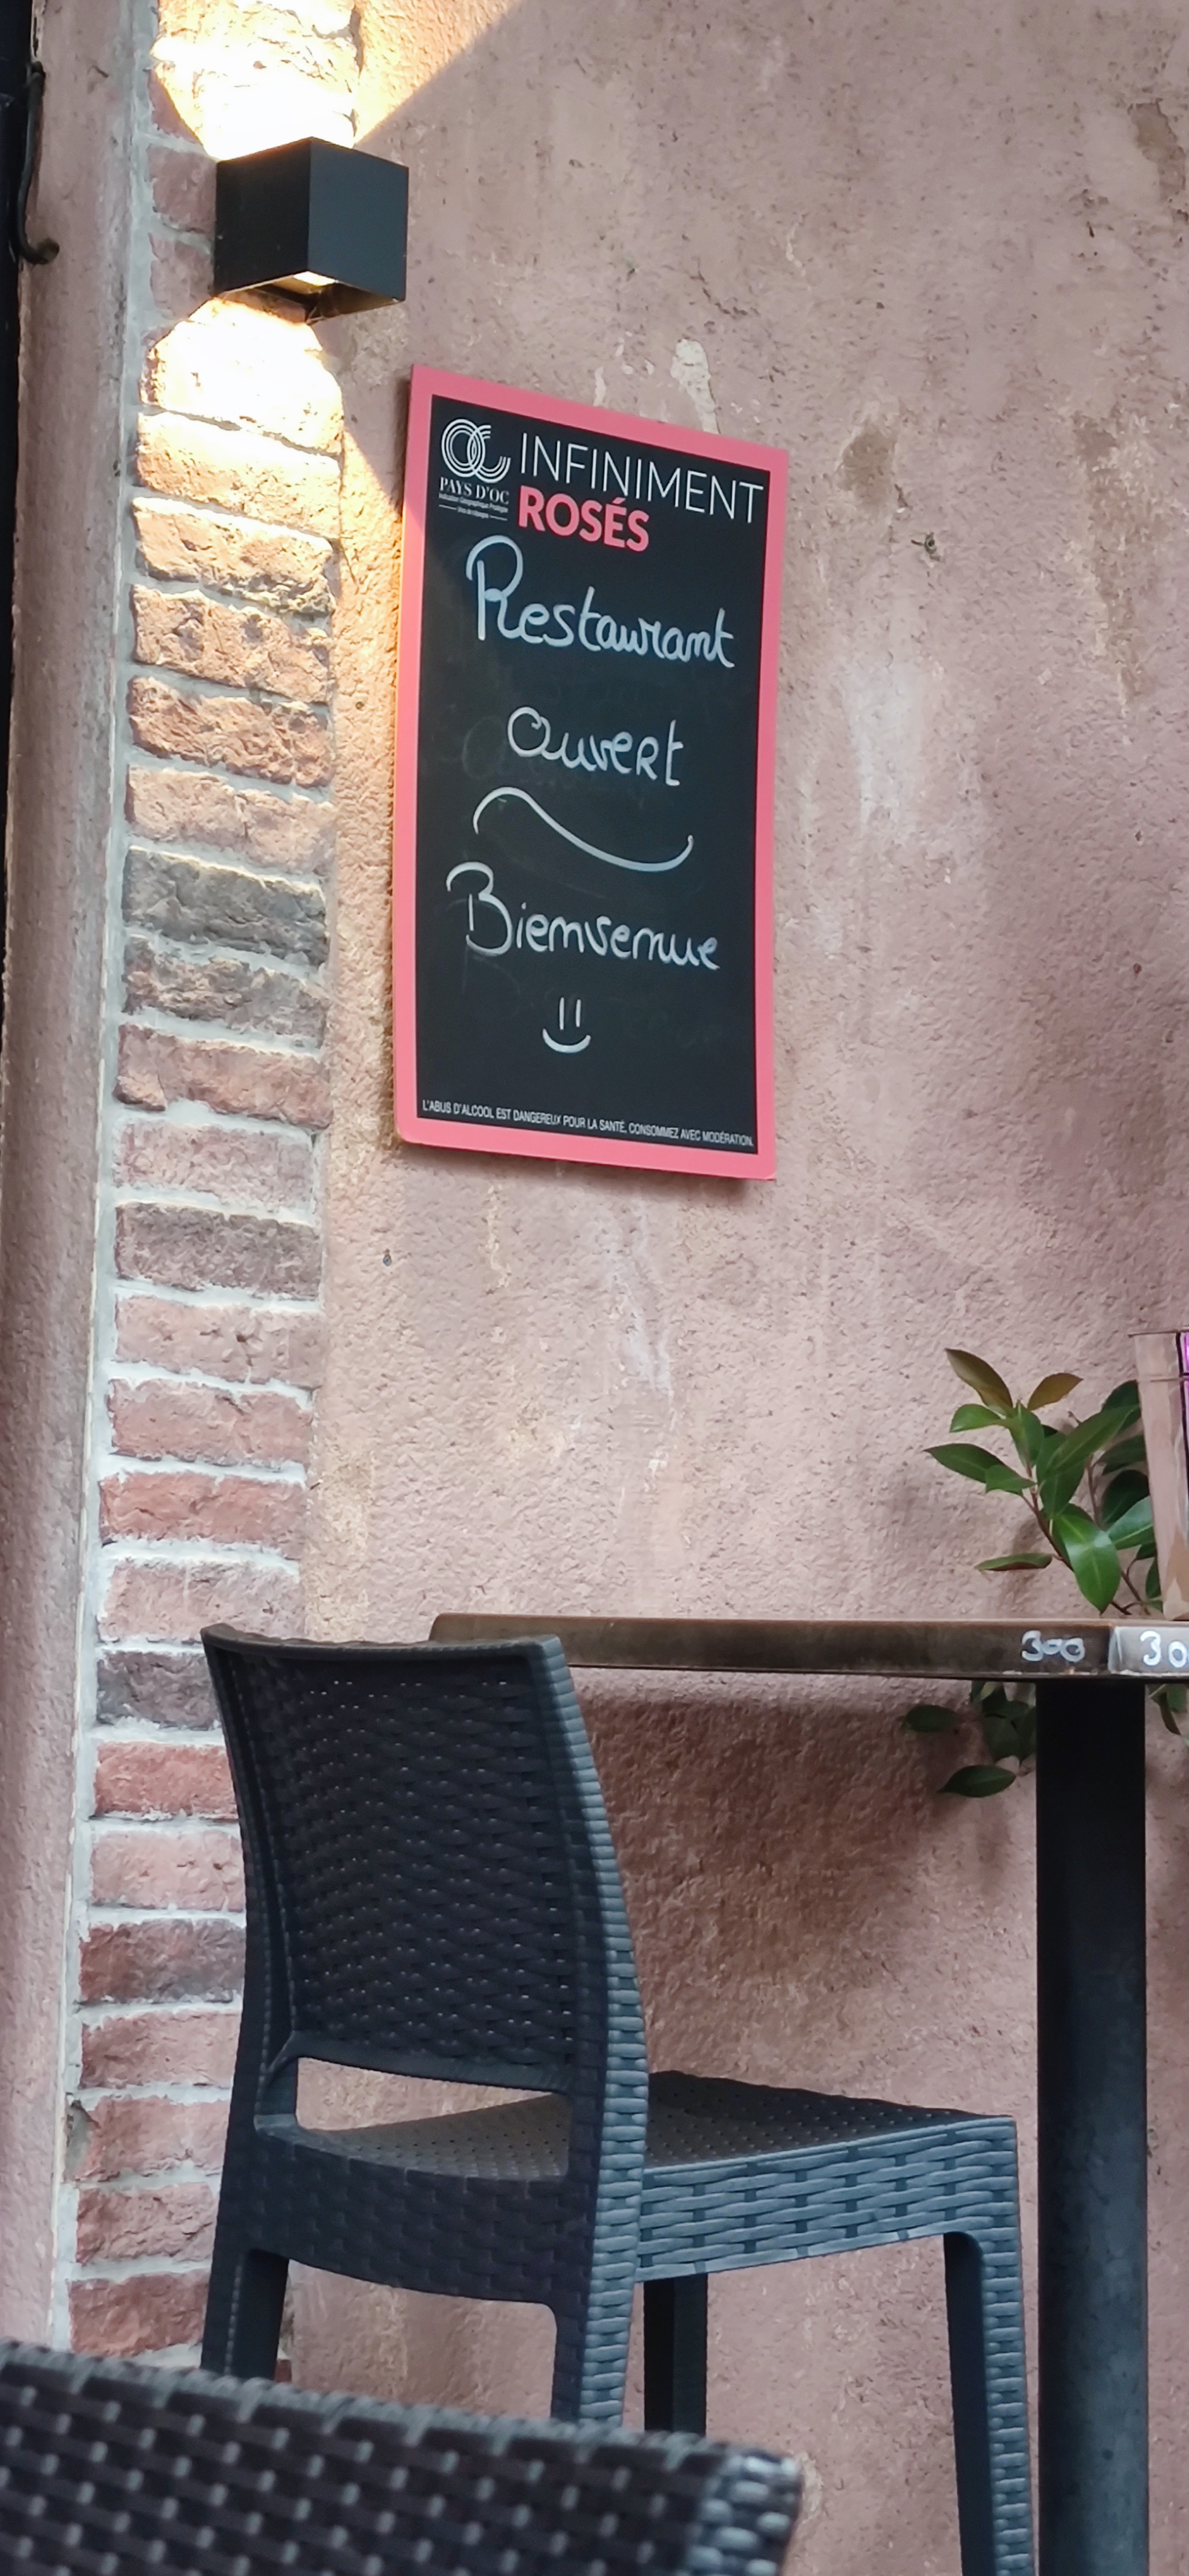 PAYS D'OC
Indication Géographique Protégée
INFINIMENT
ROSÉS
Restaurant
ouvert
Bienvenue
L'ABUS D'ALCOOL EST DANGEREUX POUR LA SANTÉ, CONSOMMEZ AVEC MODÉRATION.
300
30